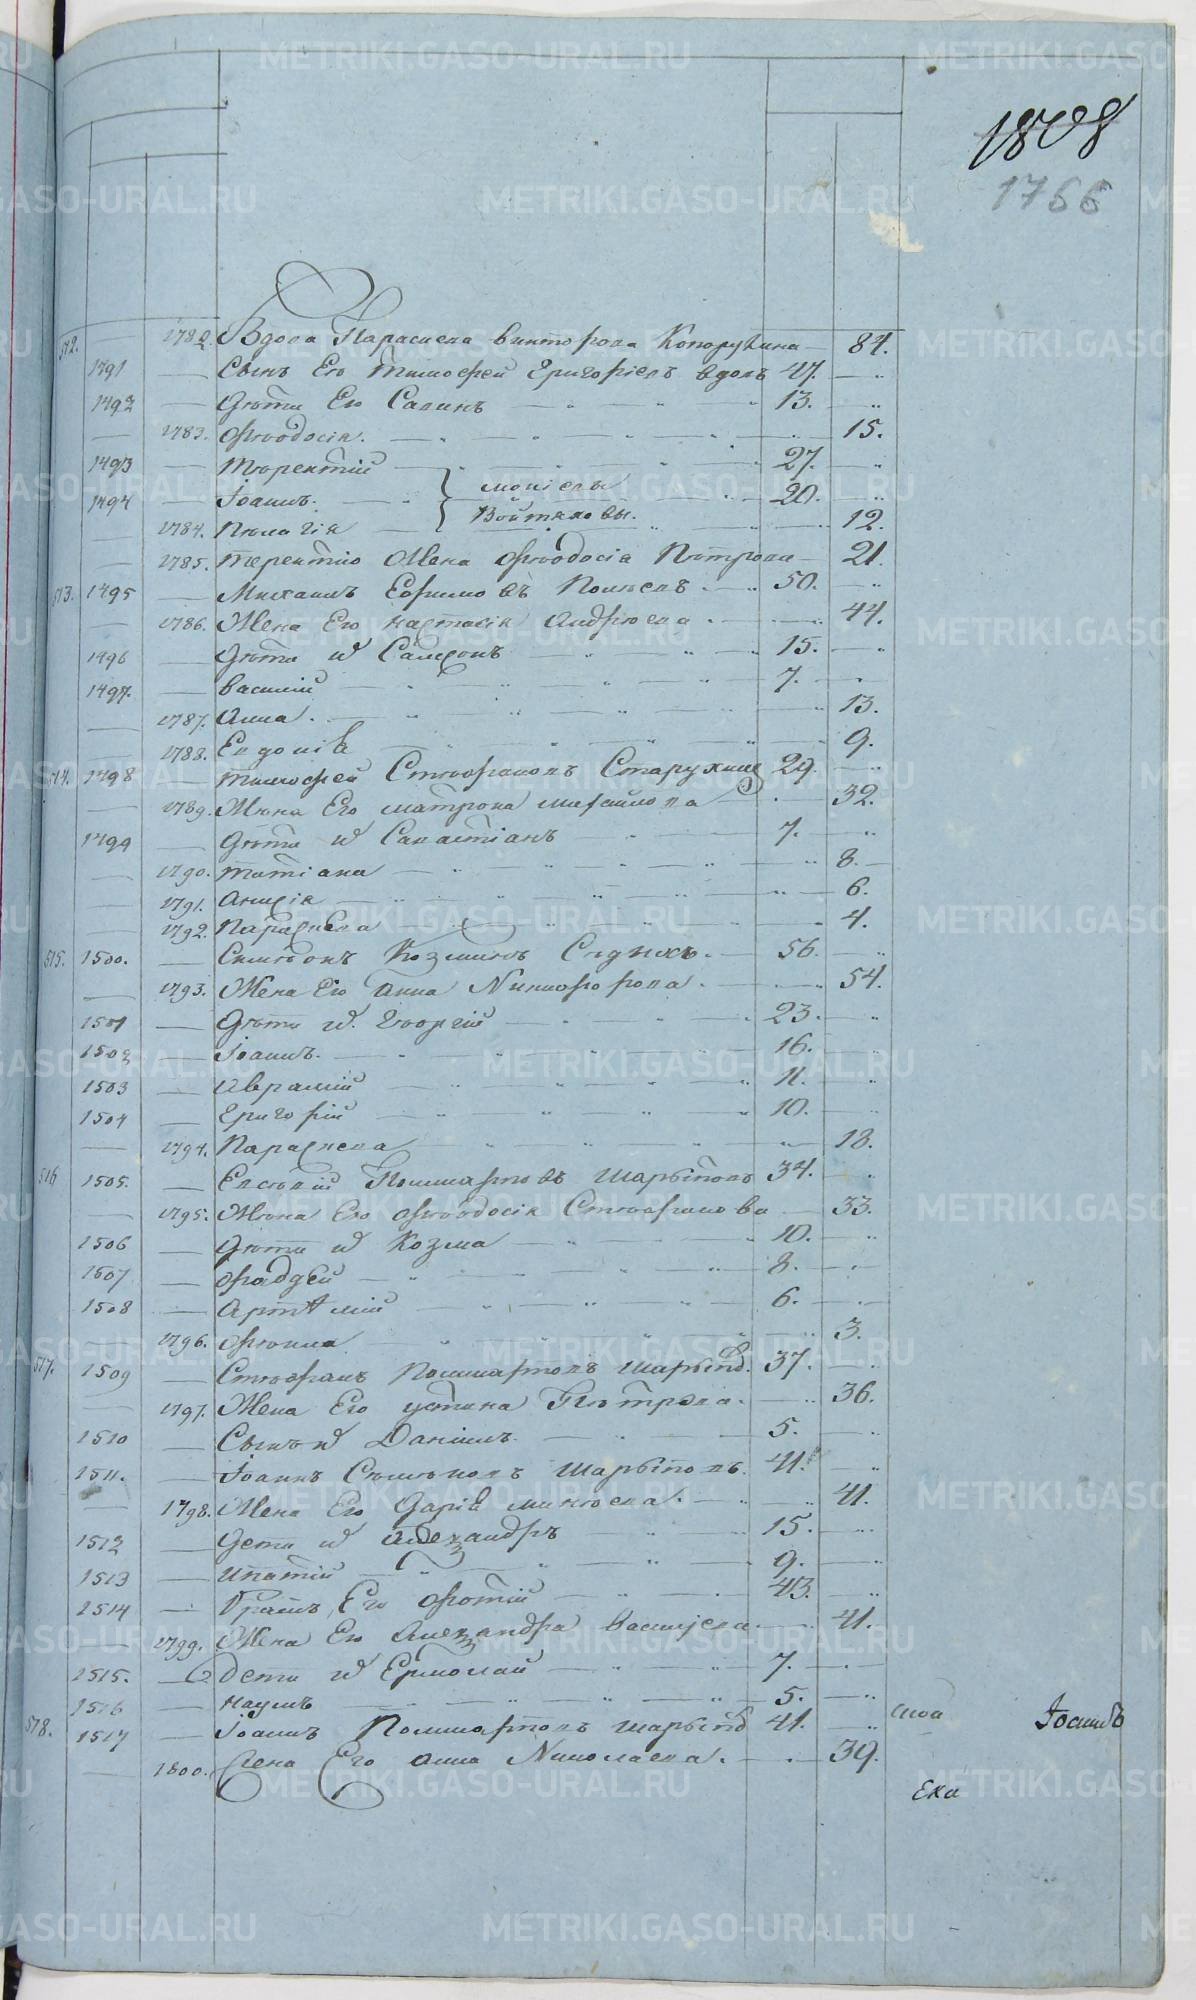 1808
1766
512. 1782. Вдова Параскева викторова Копорулина 84.
1491 Сынъ Его Тимофей Григорьевъ вдовъ 47.
1492 Дѣти Его Савинъ 13.
1783. Ѳеодосія. 15.
1493 Терентій 27.
1494 Іоаннъ. 20.
1784. Пелагія 12.
моисѣевы
Войтяковы.
1785. Терентію Жена Ѳеодосія Петрова 21.
513. 1495 Михаилъ Ефимовъ 50.
1786. Жена Его настасія Андреева 44.
1496 Дѣти и҃ Самсонъ 15.
1497. василій 7.
1787. Анна. 13.
1788. Евдокія 9.
514. 1498 тимофей Стефановъ Старухинъ 29.
1789. Жена Его матрона михайлова 32.
1499 Дѣти и҃ Савастіанъ 7.
1790. татіана 8.
1791. Анисія 6.
1792. Параскева 4.
515. 1500. Симеонъ Козминъ Сѣдыхъ. 56.
1793. Жена Его Анна Никифорова. 54.
1501 Дѣти и҃ Георгій 23.
1502 Іоаннъ. 16.
1503 Аврамій 11.
1504 Григорій 10.
1794. Параскева 18.
516 1505. Евсевій Шарыповъ 34.
1795. Жена Его Ѳеодосія Стефанова 33.
1506 Дѣти и҃ Козма 10.
1507 Фадѣй 8.
1508 Артемій 6.
1796. Фекла 3.
517. 1509 Стефанъ Шарыпов. 37.
1797. Жена Его устина Петрова. 36.
1510 Сынъ и҃ Даніилъ. 5.
1511. Іоаннъ Шарыповъ. 41.
1798. Жена Его Дарія минеева. 41.
1512 Дети и҃ Александръ 15.
1513 ипатій 9.
1514 Братъ Его Фотій 43.
1799. Жена Его Александра васильева 41.
1515. Дети и҃ Ермолай 7.
1516 наумъ 5.
518. 1517 Іоаннъ шарыпов 41. Іоаннъ
1800. Жена Его анна Николаева. 39.
Ека